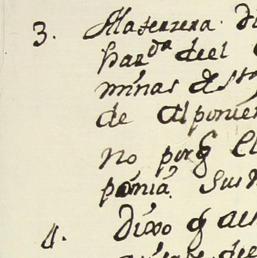 3. Ala terzera. Di
har da deel
minas de Sto
de Al ponien
no porq El
ponia. Sus
4. Dixo q al